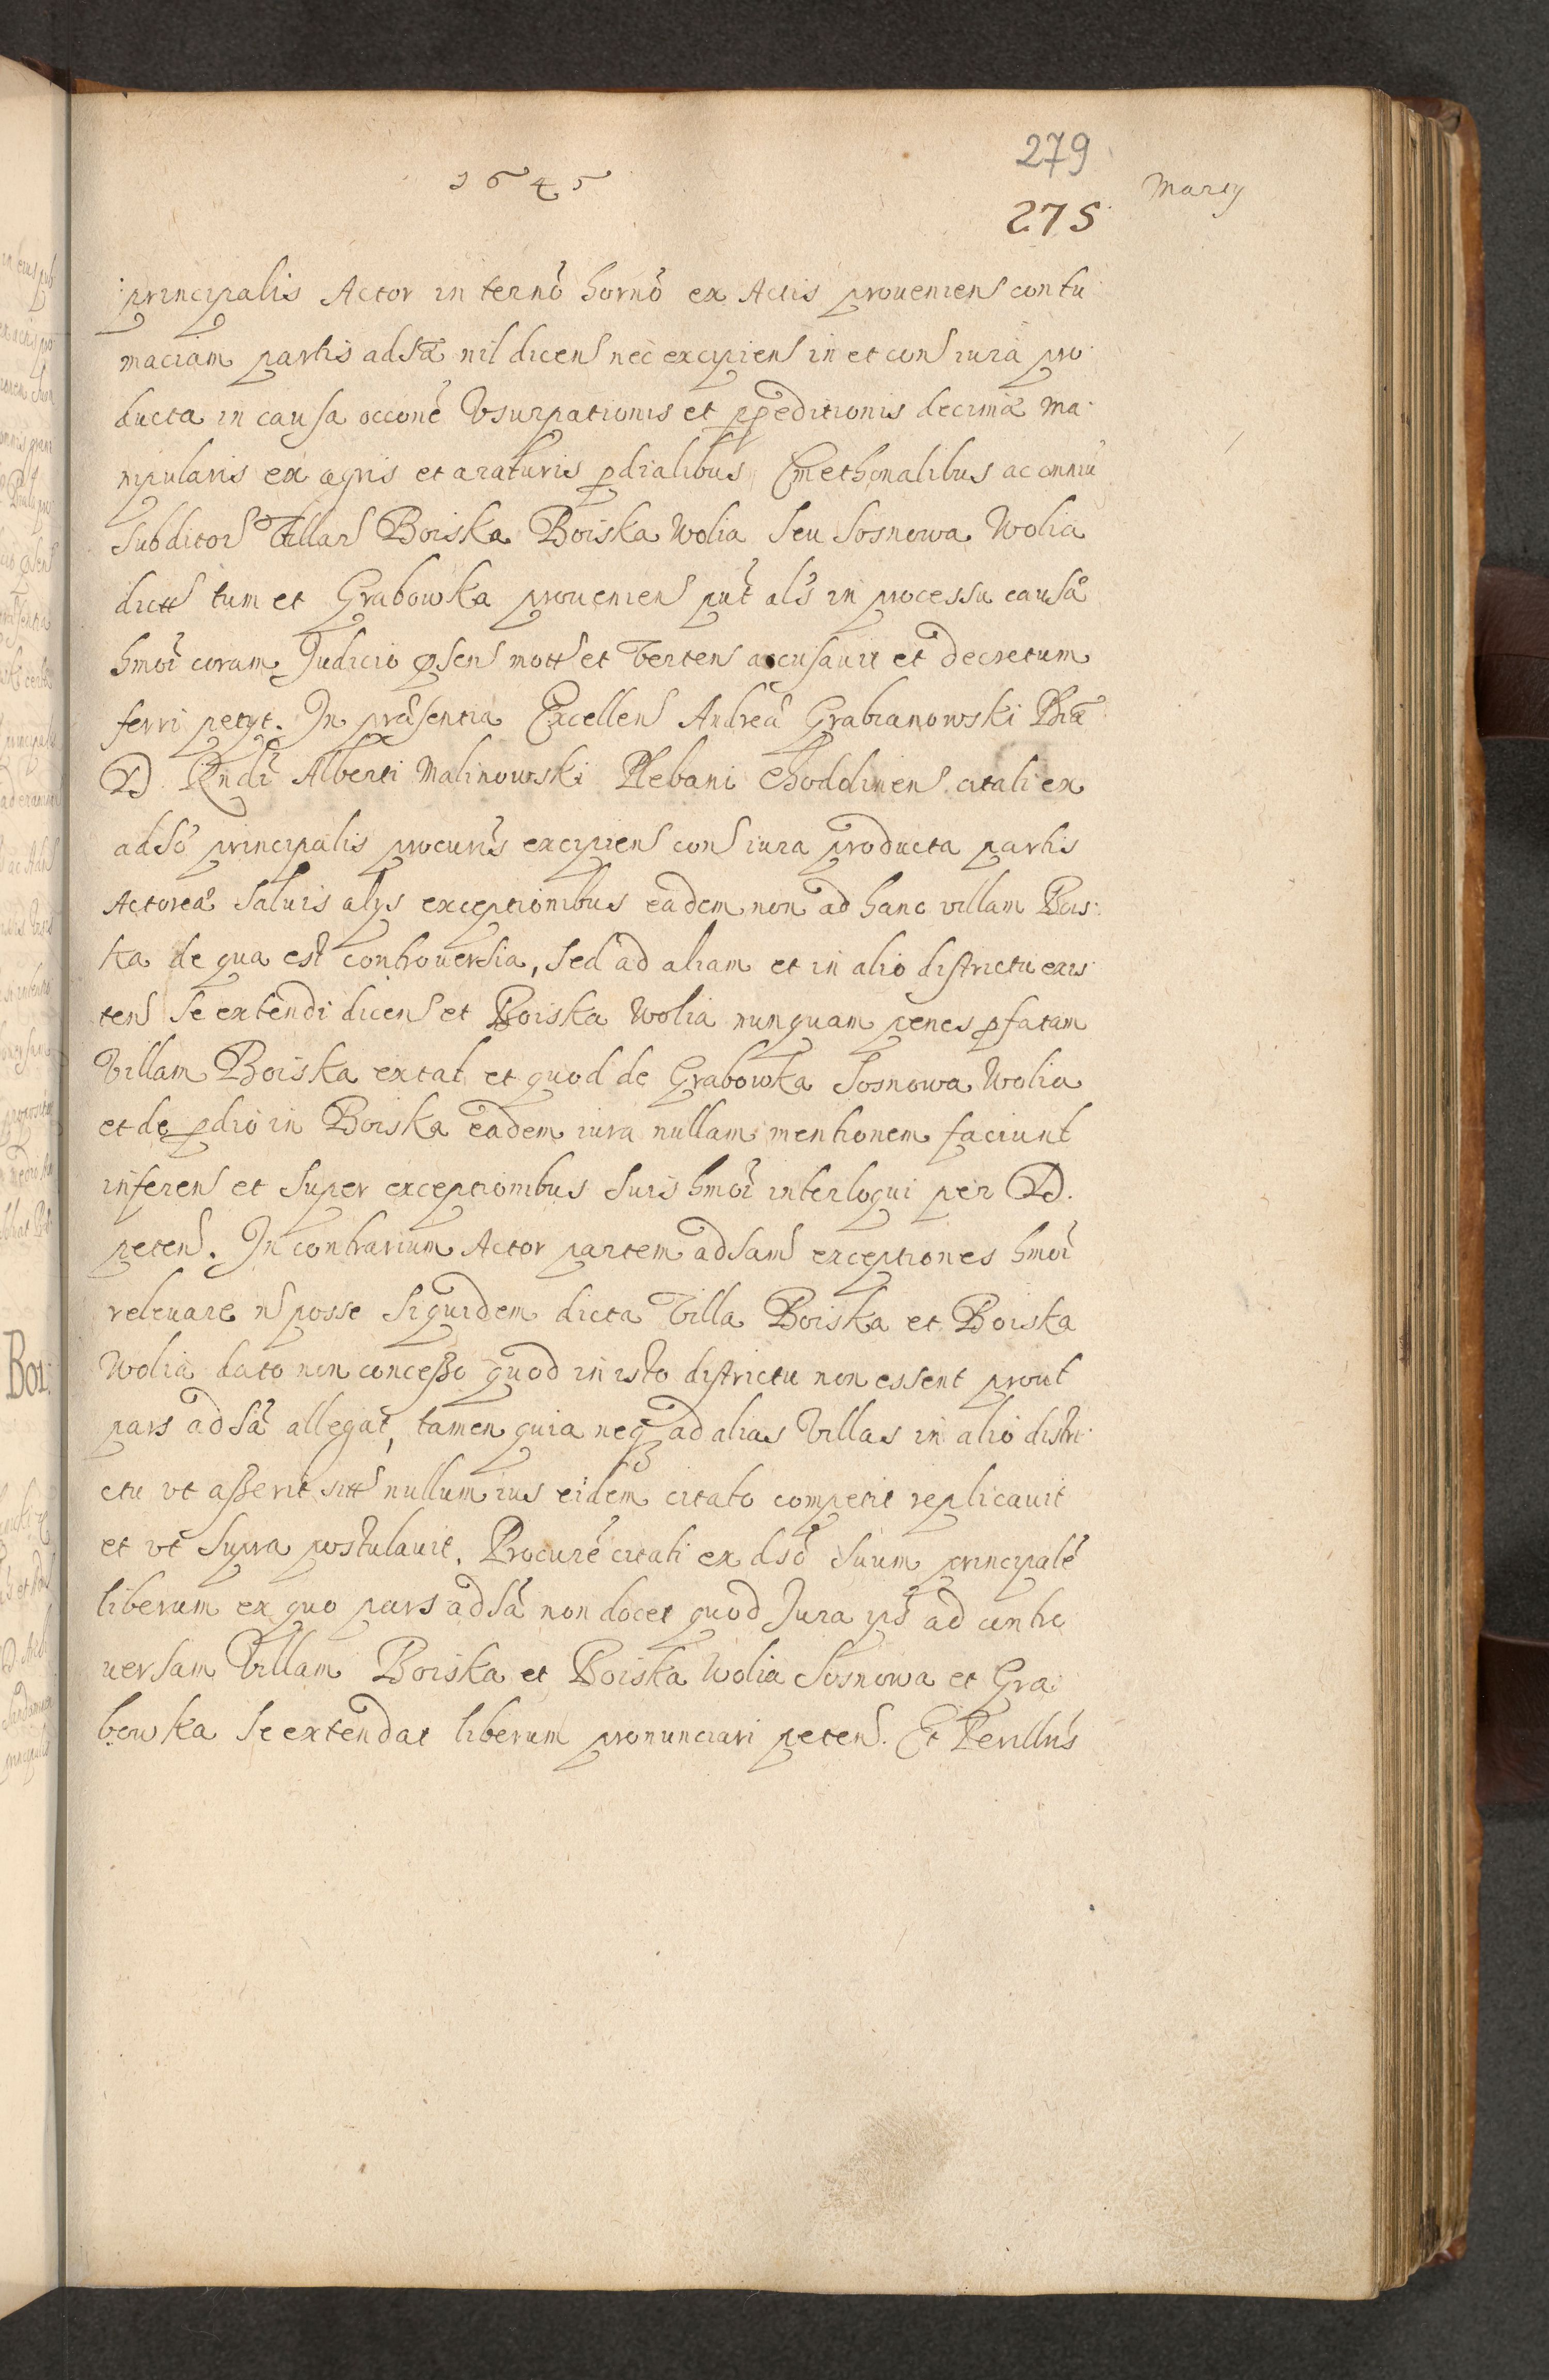 279
1645
Marty
275
principalis Actor in termō hornō ex Actis prouenien contu
maciam partis adsā nil dicen nec excipien in et con iura pro
ducta in causa occōnē Vsurpationis et ꝓpeditionis decimæ ma
nipularis ex agris et araturis p̄dialibus Cmethonalibus ac omniū
subditor Villar Boiska Boiska Wolia seu Sosnowa Wolia
dict tum et Grabowka prouenien put̄ als in processu causæ
hmoi coram Judicio p̄sen nott et Verten accusauit et decretum
ferri petyt. In præsentia Excellen Andreæ Grabianowski Phiæ
D Rndi Alberti Malinowski Plebani Choddinen citati ex
adsō principalis procuris excipien con iura producta partis
Actoreæ saluis alys exceptionibus eadem non ad hanc villam Bois
ka de qua est controuersia, sed ad aliam et in alio districtu exis
ten se extendi dicen et Boiska Wolia nunquam penes p̄fatam
Villam Boiska extat et quod de Grabowka Sosnowa Wolia
et de p̄dio in Boiska eadem iura nullam mentionem faciunt
inferen et super exceptionibus suis hmoi interloqui per D.
peten. In contrarium Actor partem adsam exceptiones hmoi
releuare n posse siquidem dicta Villa Boiska et Boiska
Wolia dato non concesso quod in isto districtu non essent prout
pars adsā allegat, tamen quia neq ad alias Villas in alio distri
ctu vt asserit sitt nullum ius eidem citato competit replicauit
et vt supra postulauit. Procurē citati ex dsō suum principalē
liberum ex quo pars adsā non docet quod Jura ips ad contro
uersam Villam Boiska et Boiska Wolia Sosnowa et Gra
bowka se extendat liberum pronunciari peten. Et Perillris
Boi